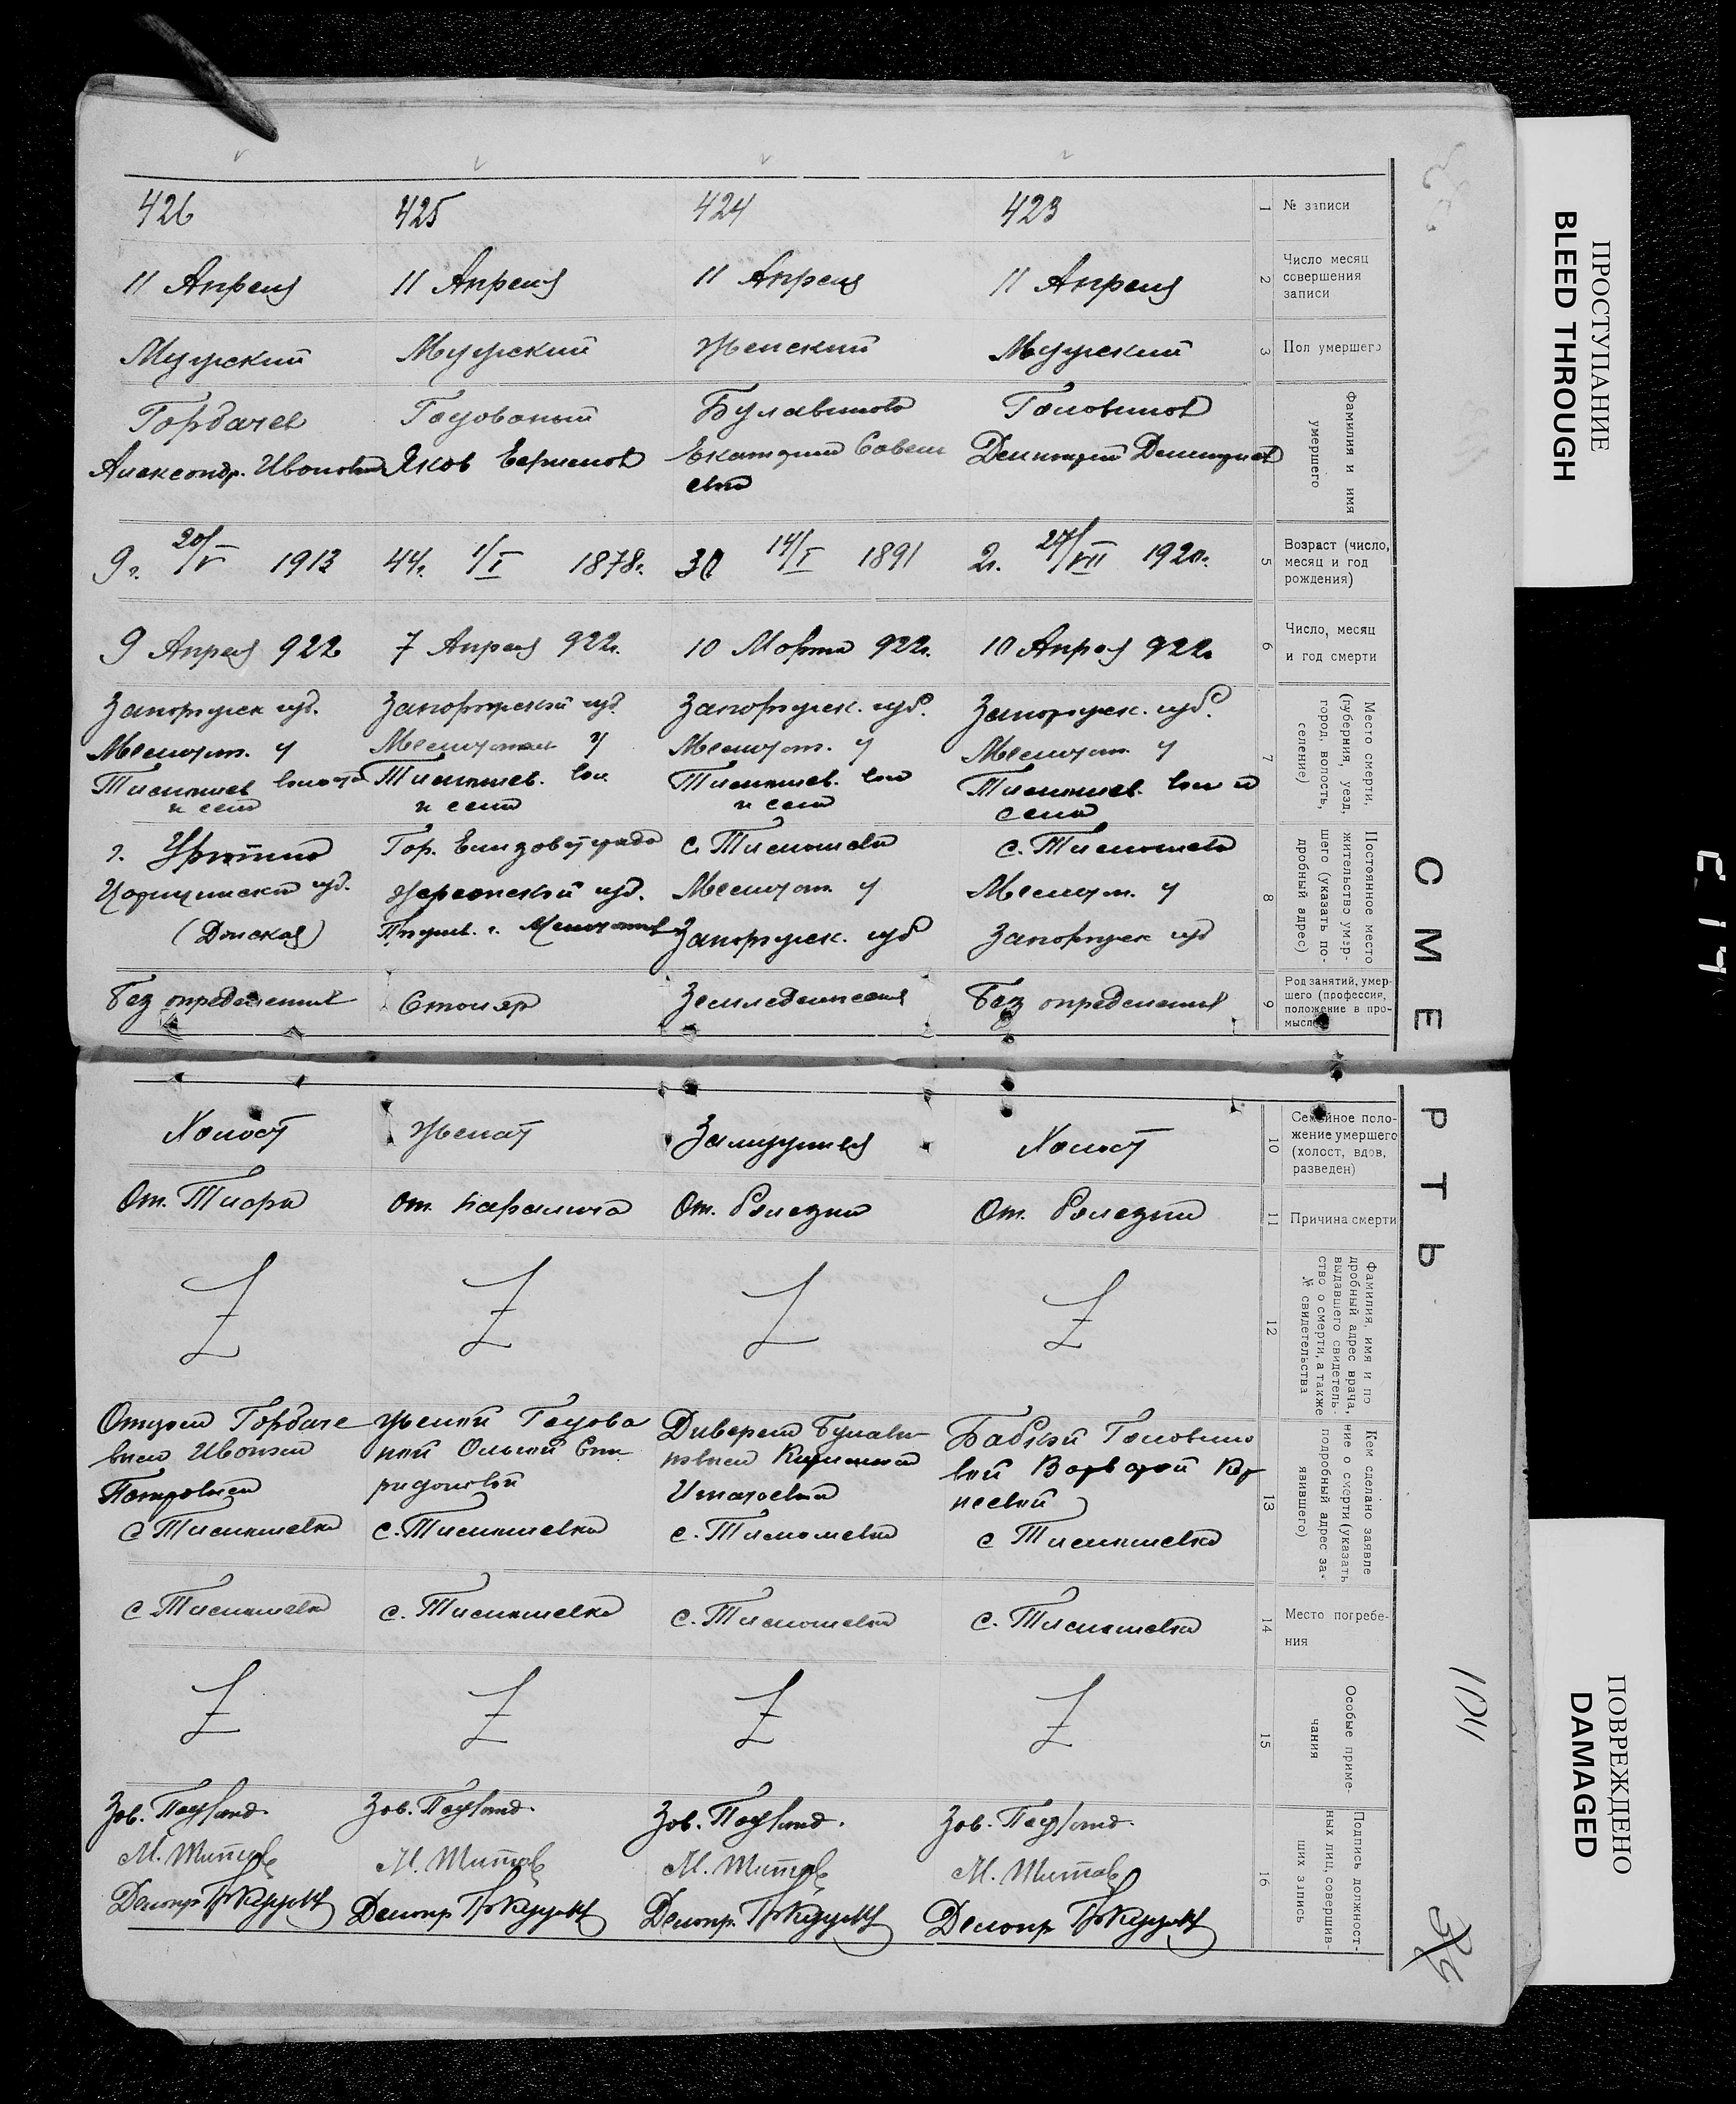 ПРОСТУПАНИЕ
BLEED THROUGH
ПОВРЕЖДЕНО
DAMAGED
СМЕРТЬ
1 № записи
423
424
425
426
2 Число месяц
совершения
записи
11 Апреля
11 Апреля
11 Апреля
11 Апреля
3 Пол умершего
Мужский
Женский
Мужский
Мужский
Фамилия и имя
умершего
Головинов
Дмитрий Дмитриев
Булавинова
Екатерина Савель
евна
Яков
Горбачев
Александр. Иванович
5 Возраст (число,
месяц и год
рождения)
2г. 27/VII 1920г.
30 14/I 1891
44г. 1/I 1878г.
9г. 20/V 1913
6 Число, месяц
и год смерти
10 Апреля 922г
10 Марта 922г.
7 Апреля 922г.
9 Апреля 922
7 Место смерти,
(губерния, уезд,
город, волость,
селение)
Запорожск. губ.
Мелитоп. у
Тимошев. вол и
села
Запорожск. губ.
Мелитоп. у
Тимошев. вол
и села
Запорожской губ.
у
Тимошев. вол.
и села
Запорожск губ.
Мелитоп. у
Тимошев волости
и села
8 Постоянное место
жительство умер-
шего (указать по-
дробный адрес)
с. Тимошевка
Мелитоп. у
Запорожск губ
с. Тимошевка
Мелитоп. у
Запорожск. губ
Гор. Елизаветграда
Херсонской губ.
г.
Царицынской губ.
(Донская)
9 Род занятий, умер-
шего (профессия,
положение в про-
мысле)
Без определения
Земледельческая
Столяр
Без определения
10 Семейное поло-
жение умершего
(холост, вдов,
разведен)
Холост
Замужняя
Женат
Холост
11 Причина смерти
От. болезни
От. болезни
от. паралича
От. Тифа
12 Фамилия, имя и по
дробный адрес врача,
выдавшего свидетель-
ство о смерти, а также
№ свидетельства
13 Кем сделано заявле
ние о смерти (указать
подробный адрес за-
явившего)
Бабкой Головино
вой Варварой Кор
неевой
с Тимошевка
с. Тимошевка
Женой
Ольгой Спи
ридоновой
с. Тимошевка
Отцом Горбаче
вым Иваном
Петровичем
с Тимошевка
14 Место погребе-
ния
с. Тимошевка
с. Тимошевка
с. Тимошевка
с Тимошевка
15 Особые приме-
чания
16 Подпись должност-
ных лиц, совершив-
ших запись
Зав.
М. Титов
Делопр
Зав.
М. Титов
Делопр.
Зав.
М. Титов
Делопр
Зав.
М. Титов
Делопр